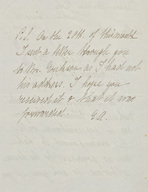 P.S. On the 28th of this month
I sent a letter through you
to Mr. Jackson as I had not
his address. I hope you
received it & that it was
forwarded.